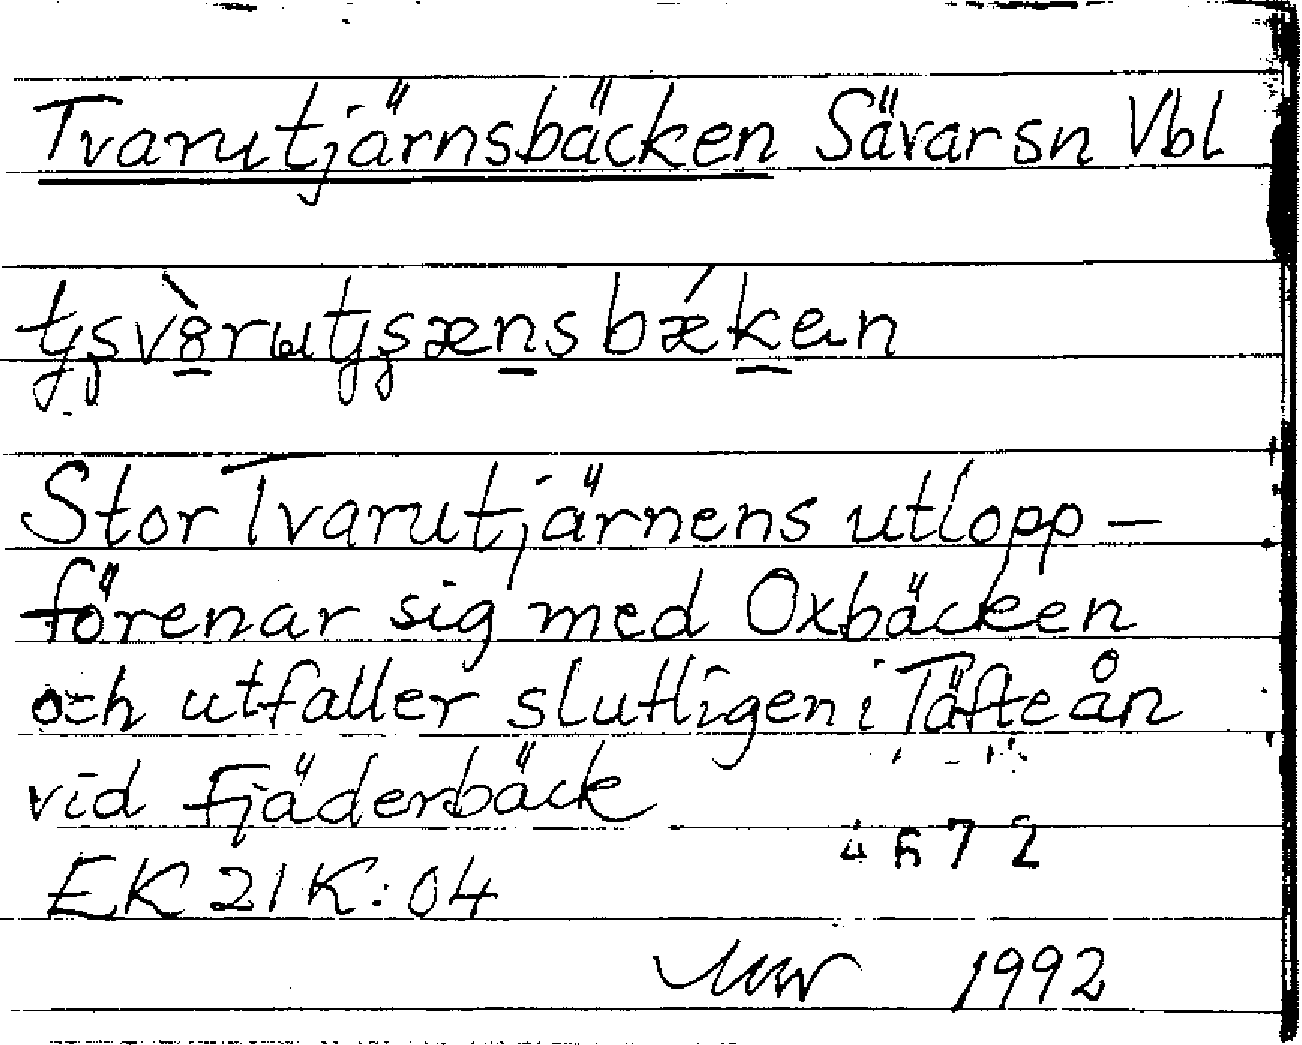 Tvarutjärnsbäcken Sävar sn Vbl
Stor Tvarutjärnens utlopp –
förenar sig med Oxbäcken
och utfaller slutligen i Täfteån
vid Fjäderbäck
4672
EK 21K:04
1992